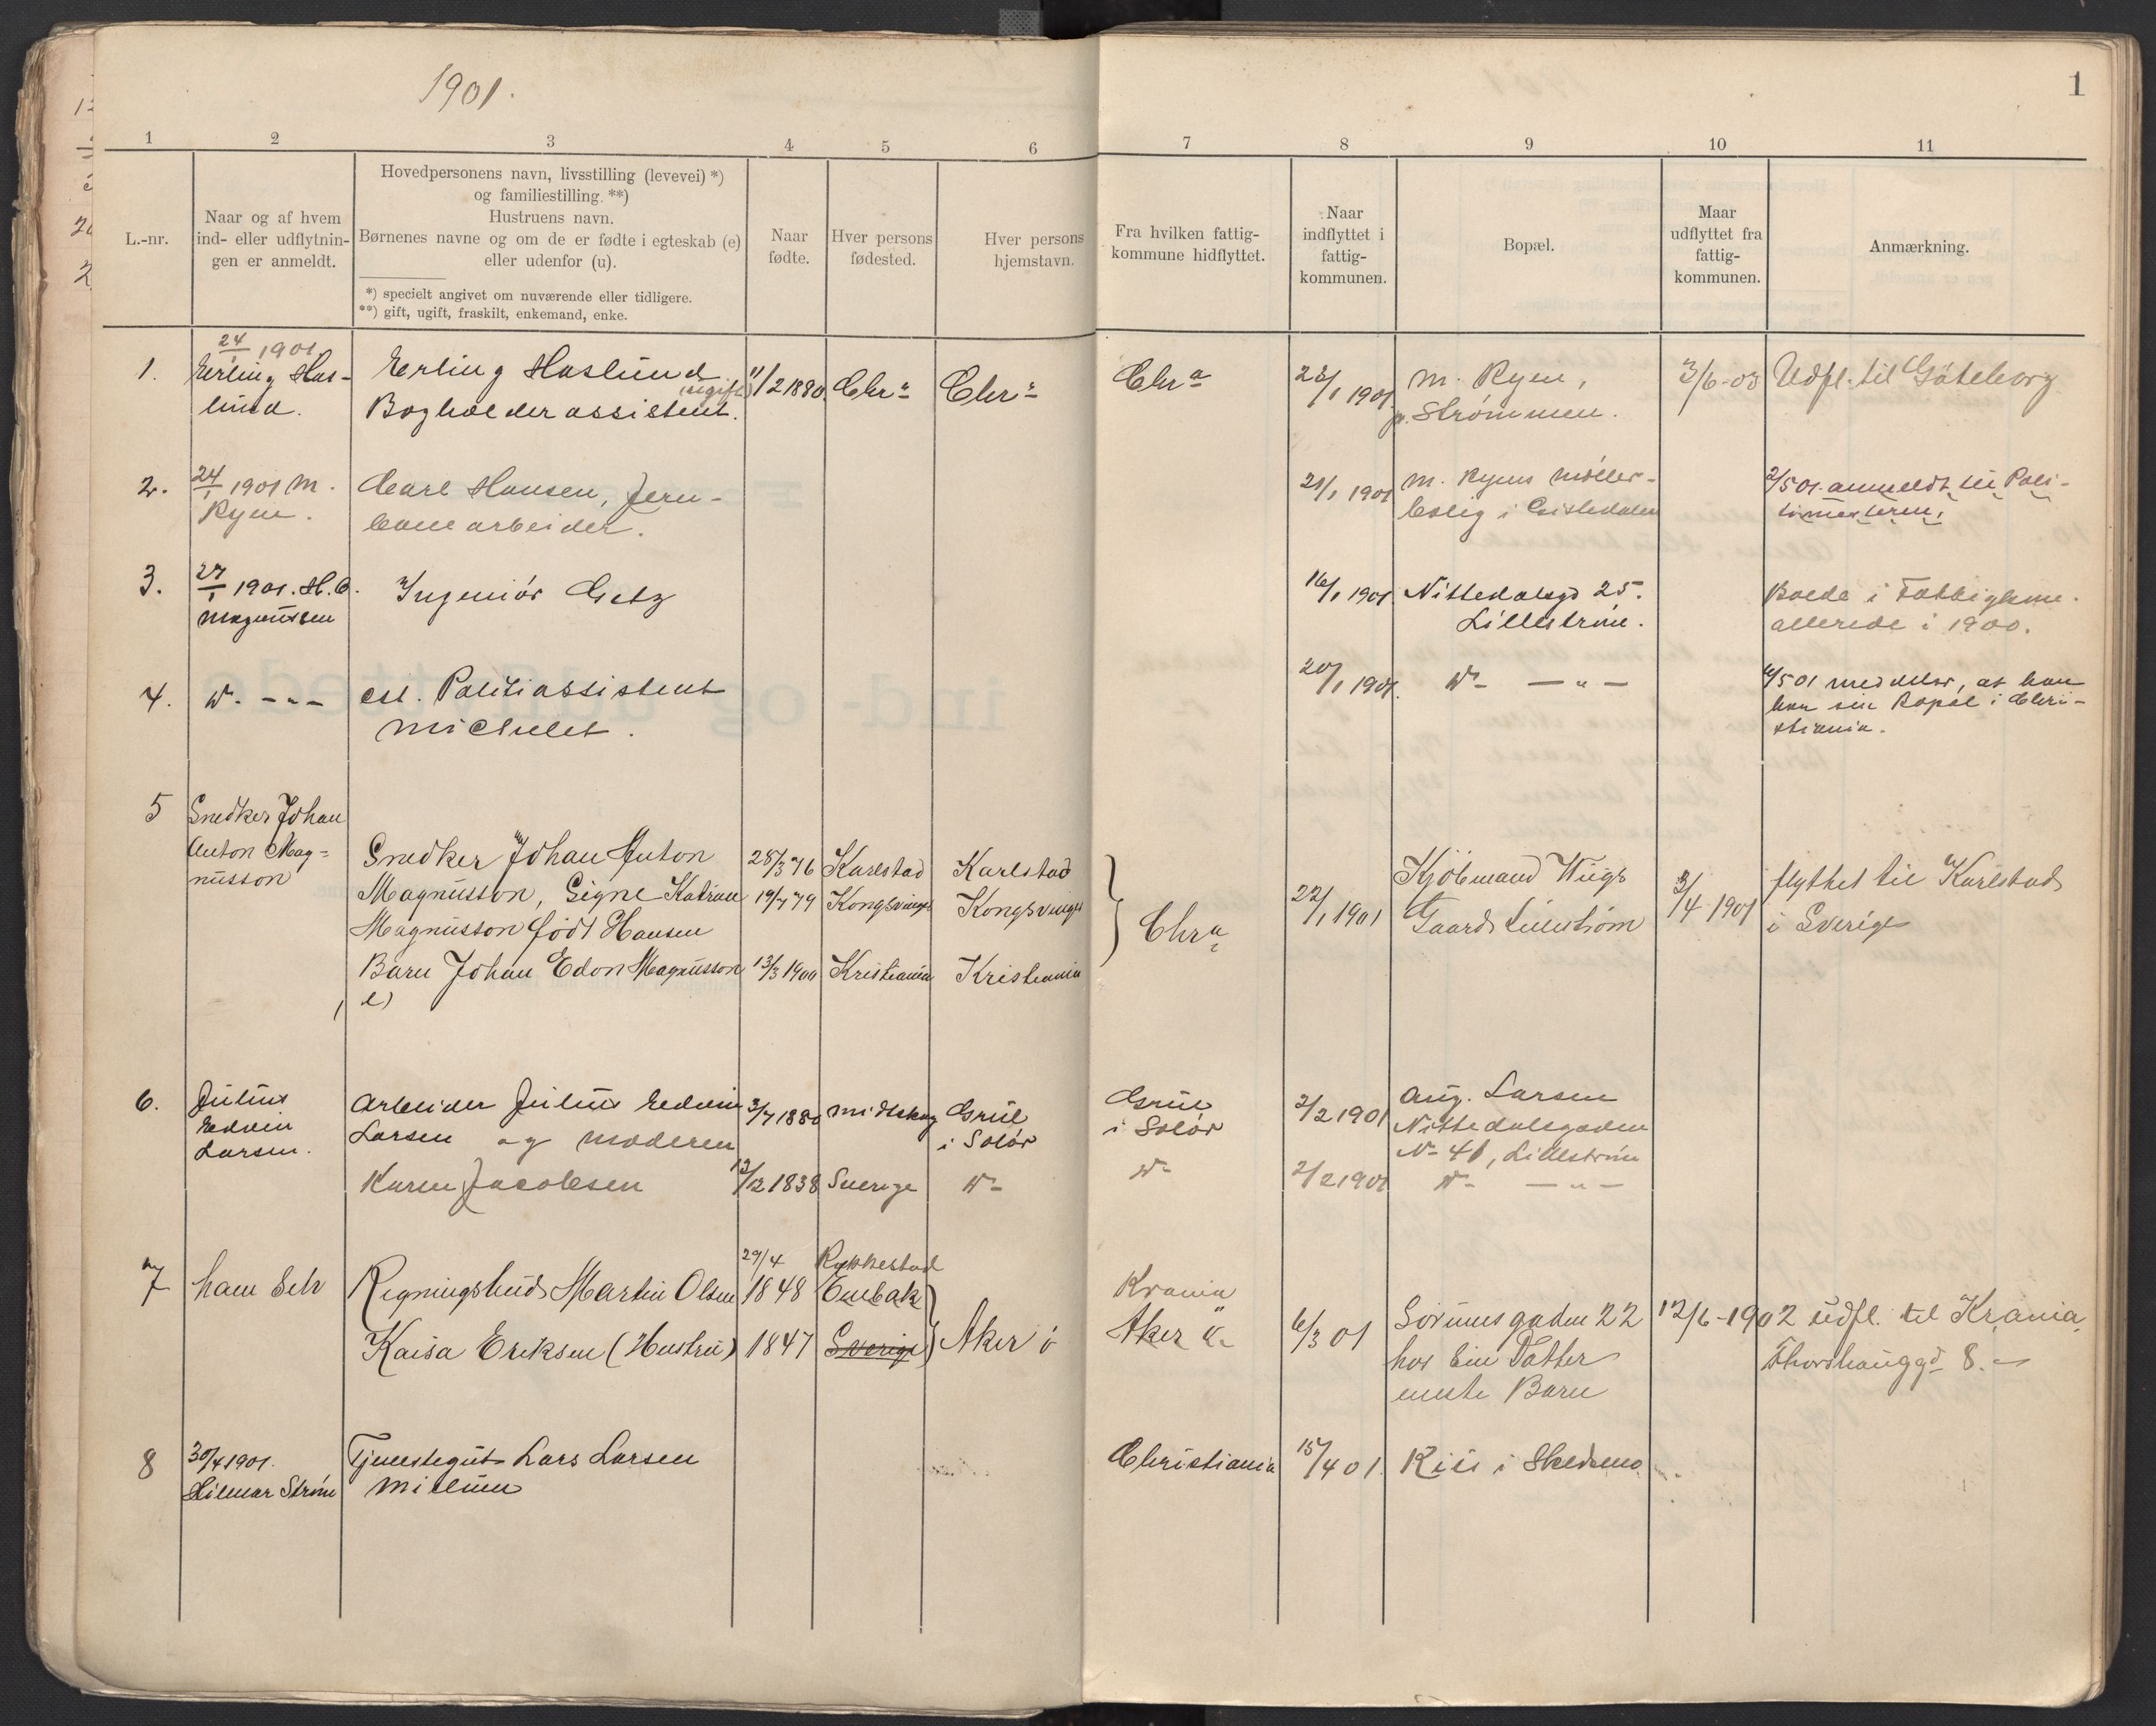 1901.
1
1 2 3 4 5 6 7 8 9 10 11
L.-nr.
Naar og af hvem
ind- eller udflytnin-
gen er anmeldt.
Hovedpersonens navn, livsstilling (levevei) *)
og familiestilling. **)
Hustruens navn.
Børnenes navne og om de er fødte i egteskab (e)
eller udenfor (u).
*) specielt angivet om nuværende eller tidligere.
**) gift, ugift, fraskilt, enkemand, enke.
Naar
fødte.
Hver persons
fødested.
Hver persons
hjemstavn.
Fra hvilken fattig-
kommune hidflyttet.
Naar
indflyttet i
fattig-
kommunen.
Bopæl.
Maar
udflyttet fra
fattig-
kommunen.
Anmærkning.
1.
24/1 1901
Erling Has-
lund.
Erling Haslund
(ugift)
Bogholderassistent.
11/2 1880.
Chr a
Chr a
Chr a
23/1 1901.
M. Ryen,
pr. Strømmen.
3/6-03
Udfl. til Göteborg
2.
24/1 1901 M.
Ryen.
Carl Hansen, Jern-
banearbeider.
21/1 1901
M. Ryens Møller-
bolig i
2/5 01. anmeldt til Poli-
timesteren.
3.
27/1 1901. H. C.
Magnussen
Ingeniør Getz
16/1 1901
Nittedalsgd 25.
Lillestrøm.
Boede i Fattigkom.
allerede i 1900.
4.
D. - " -
cst. Politiassistent
Michelet.
20/1 1901.
D- — " —
5 01 meddeler, at han
har sin Bopæl i Chri-
stiania.
5
Snedker Johan
Anton Mag-
nusson
Snedker Johan Anton
Magnusson, Signe Katrine
Magnusson født Hansen
Barn Johan Edon Magnusson
(e)
28/3 76
19/7 79
13/3 1900
Karlstad
Kongsvinger
Kristiania
Karlstad
Kongsvinger
Kristiania
Chr a
22/1 1901
Kjøbmand Wiigs
Gaard Lillestrøm
3/4-1901
flyttet til Karlstad
i Sverige
6.
Julius
Edvin
Larsen.
Arbeider Julius Edvin
Larsen og Moderen
Karen Jacobsen
3/7 1880
12/12 1838
Midtskog
Sverige
Grue
i Solør
D-
Grue
i Solør
D-
2/2 1901
2/2 1901
Aug. Larsen
Nittedalsgaden
N- 41, Lillestrøm
D- — " —
7
ham Selv
Regningsbud Martin Olsen
Kaisa Eriksen (Hustru)
29/4
1848
1847
Rykkestad
Enebak
Sverige
Aker
Krania
Aker
6/3 01
Sørumsgaden 22
hos Sin Datter
eneste Barn
12/6-1902
udfl. til Krania
Thorshauggd 8.
8
30/4 1901.
Hilmar Strøm
Tjenestegut Lars Larsen
15/4 01.
Christiania
Riis i Skedsmo